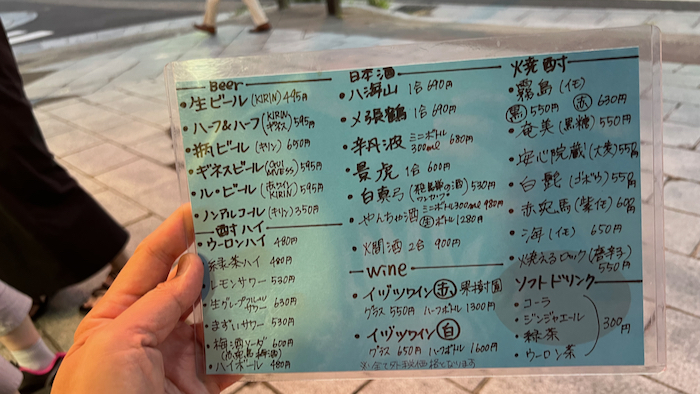 Beer
・生ビール (KIRIN) 495円
・ハーフ&ハーフ (KIRIN ギネス) 595円
ビール (キリン) 650円
・ギネスビール (GUINNESS) 595円
・ル・ビール 595円
・ノンアルコール (キリン) 350円
酎ハイ
・ウーロンハイ 480円
・緑茶ハイ 480円
・レモンサワー 530円
・生グレープフルーツサワー 630円
・まずいサワー 530円
・梅酒ソーダ 600円
・ハイボール 480円
日本酒
・八海山 1合 690円
・〆張鶴 1合 690円
・辛丹波 ミニボトル 300ml 680円
・景虎 1合 600円
・白真弓 530円
・やんちゃ酒 ミニボトル300ml 980円
ボトル 1280円
・火閣酒 2合 900円
wine
・イヅツワイン 赤 果樹園
グラス 550円 ハーフボトル 1300円
・イヅツワイン 白
グラス 650円 ハーフボトル 1600円
焼酎
・霧島 (イモ)
黒 550円 赤 630円
・奄美 (黒糖) 550円
・安心院蔵 (大麦) 550円
・白髭 (ゴボウ) 550円
・赤兎馬 (紫イモ) 600円
・海 (イモ) 650円
・燃えるロック (唐辛子)
550円
ソフトドリンク
・コーラ
・ジンジャエール
・緑茶
・ウーロン茶
300円